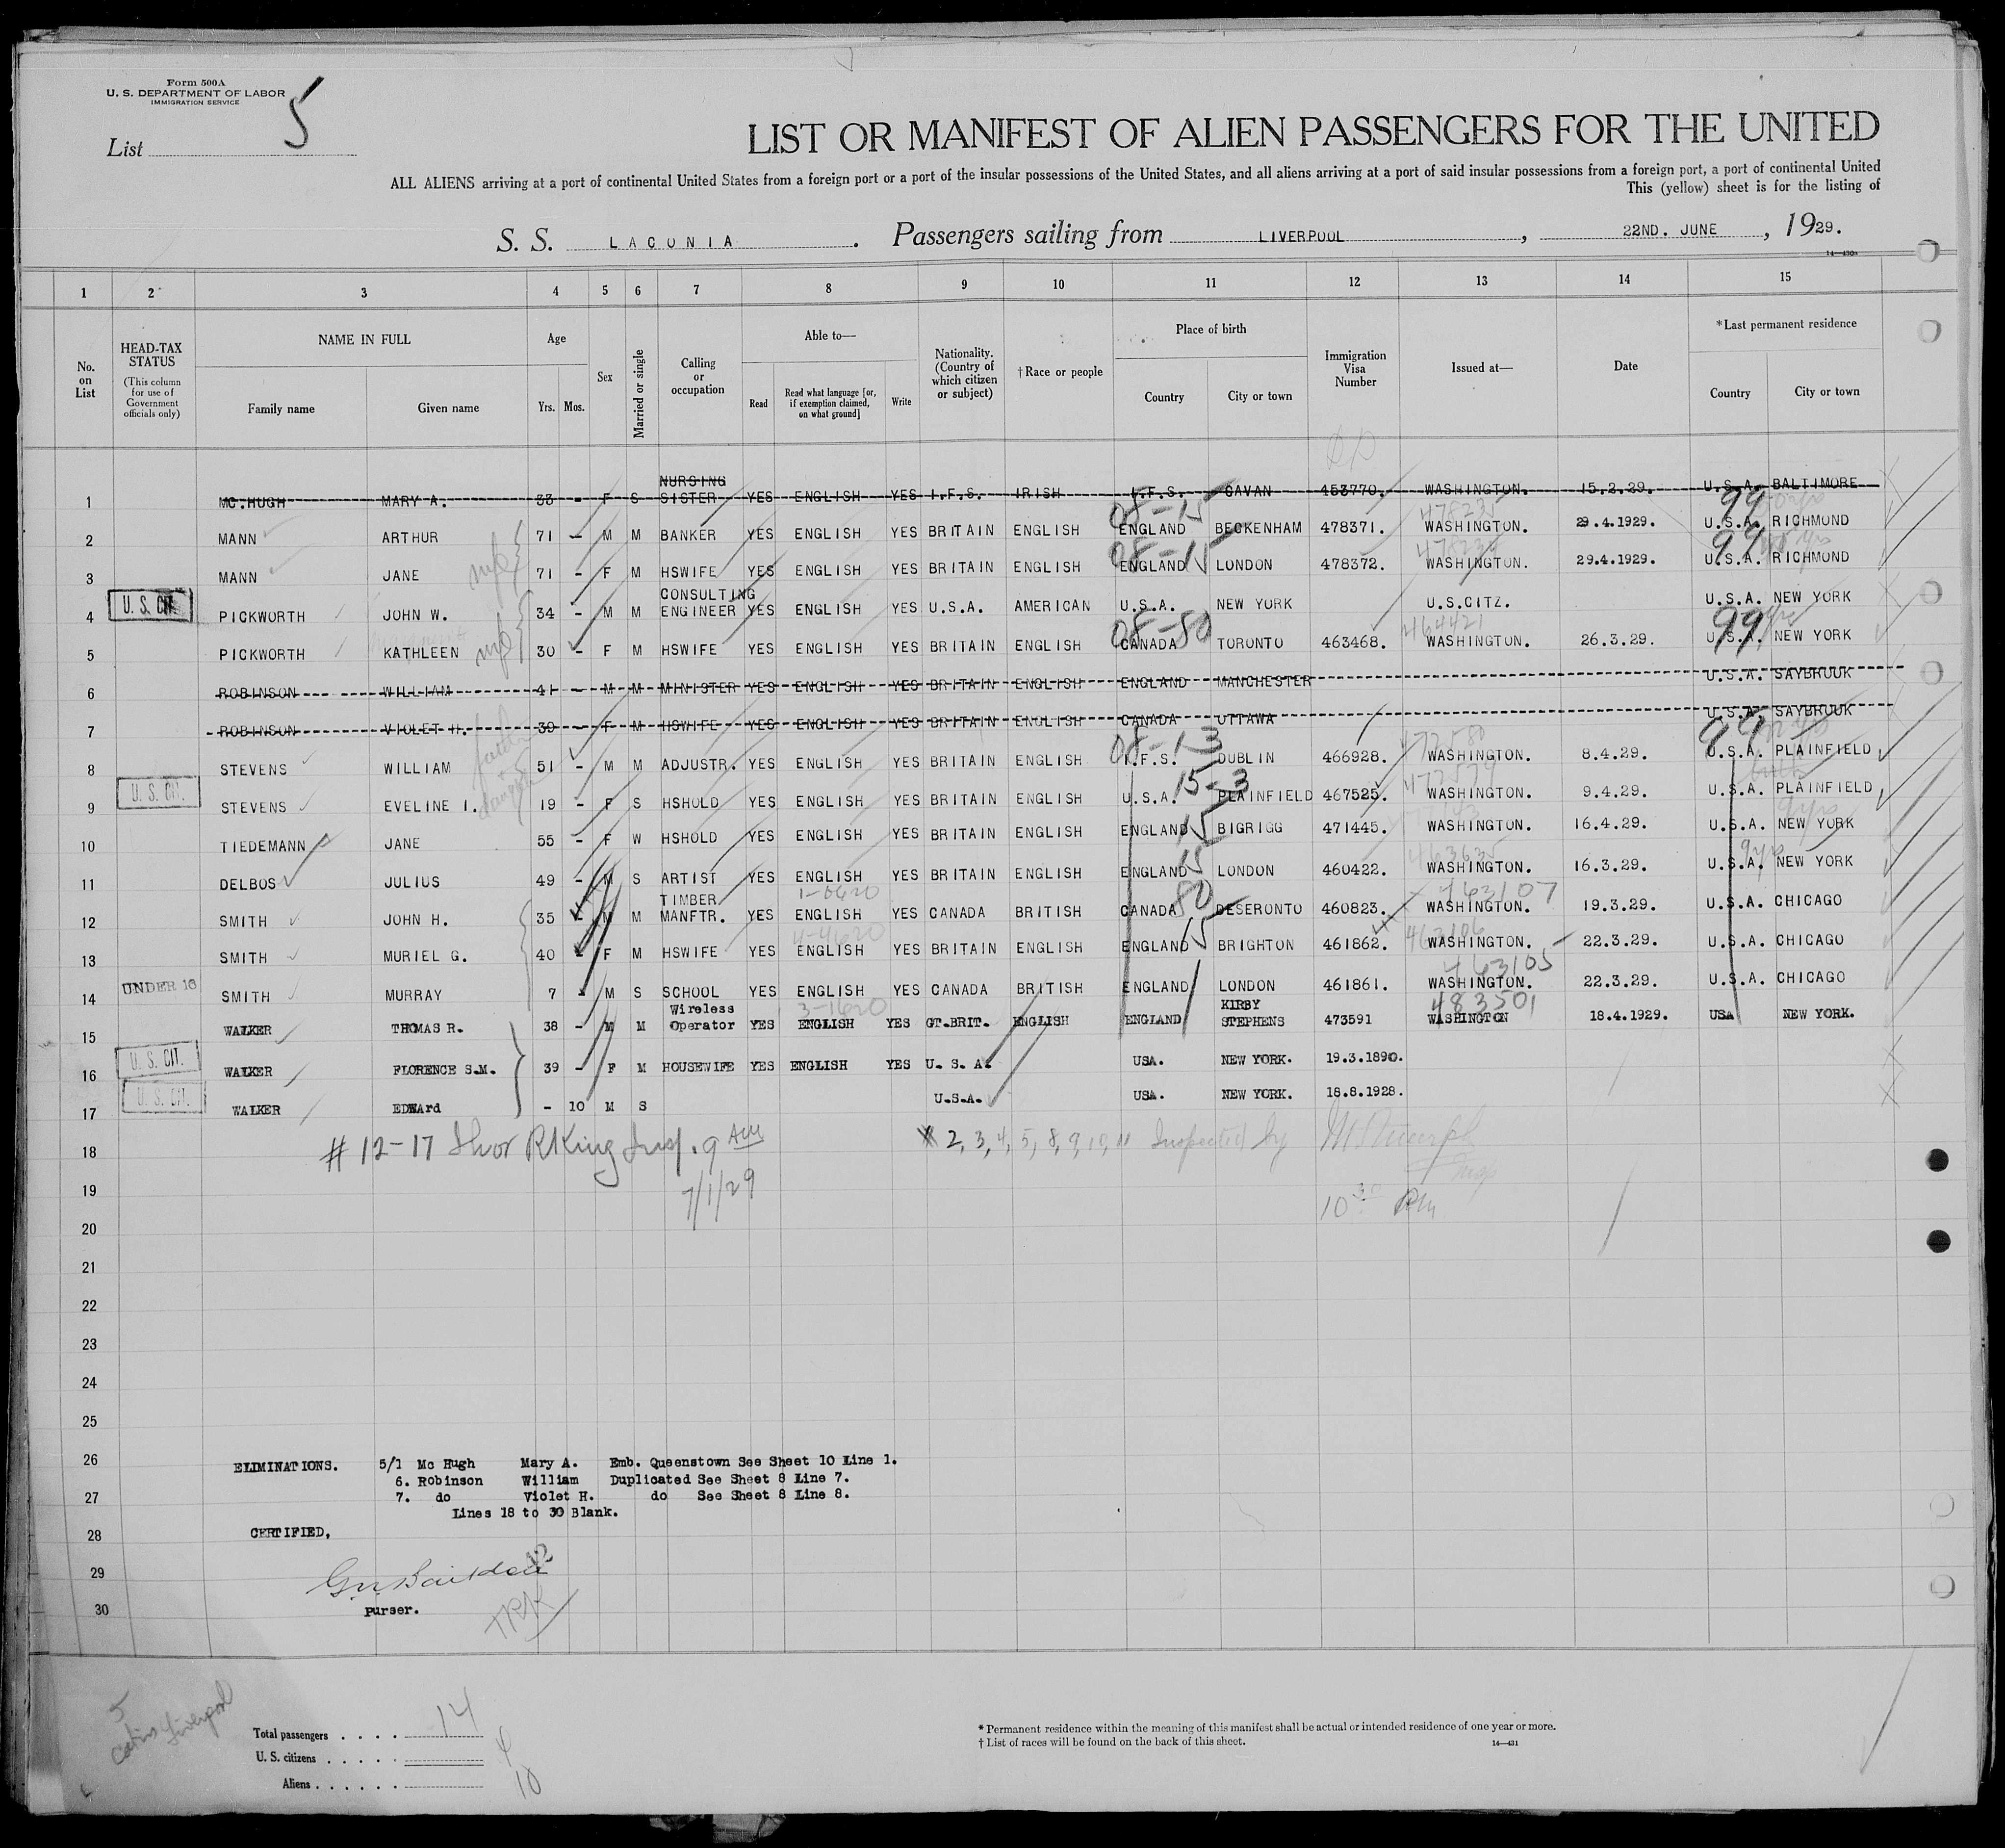 Form 500A
U. S. DEPARTMENT OF LABOR
IMMIGRATION SERVICE
List 5
LIST OR MANIFEST OF ALIEN PASSENGERS FOR THE UNITED
ALL ALIENS arriving at a port of continental United States from a foreign port or a port of the insular possessions of the United States, and all aliens arriving at a port of said insular possessions from a foreign port, a port of continental United
This (yellow) sheet is for the listing of
S. S. LACONIA. Passengers sailing from LIVERPOOL, 22ND. JUNE, 1929.
14—430a
1 2 3 4 5 6 7 8 9 10 11 12 13 14 15
No. on List
HEAD-TAX STATUS (This column for use of Government officials only)
NAME IN FULL Family name Given name
Age Yrs. Mos.
Sex
Married or single
Calling or occupation
Able to— Read Read what language [or, if exemption claimed, on what ground] Write
Nationality. (Country of which citizen or subject)
†Race or people
Place of birth Country City or town
Immigration Visa Number
Issued at—
Date
*Last permanent residence Country City or town
1 MC.HUGH MARY A. 33 - F S NURSING SISTER YES ENGLISH YES I.F.S. IRISH I.F.S. CAVAN 453770. WASHINGTON. 15.2.29. U.S.A. BALTIMORE
08-15 478235 99
2 MANN ARTHUR 71 - M M BANKER YES ENGLISH YES BRITAIN ENGLISH ENGLAND BECKENHAM 478371. WASHINGTON. 29.4.1929. U.S.A. RICHMOND
08-15 99
3 MANN JANE 71 - F M HSWIFE YES ENGLISH YES BRITAIN ENGLISH ENGLAND LONDON 478372. WASHINGTON. 29.4.1929. U.S.A. RICHMOND
4 U.S. CIT. PICKWORTH JOHN W. 34 - M M CONSULTING ENGINEER YES ENGLISH YES U.S.A. AMERICAN U.S.A. NEW YORK U.S.CITZ. U.S.A. NEW YORK
08-80 464421 99
5 PICKWORTH KATHLEEN 30 - F M HSWIFE YES ENGLISH YES BRITAIN ENGLISH CANADA TORONTO 463468. WASHINGTON. 26.3.29. U.S.A. NEW YORK
6 ROBINSON WILLIAM 41 - M M MINISTER YES ENGLISH YES BRITAIN ENGLISH ENGLAND MANCHESTER U.S.A. SAYBRUUK
7 ROBINSON VIOLET H. 39 - F M HSWIFE YES ENGLISH YES BRITAIN ENGLISH CANADA OTTAWA U.S.A. SAYBRUUK
08-13 99
8 STEVENS WILLIAM 51 - M M ADJUSTR. YES ENGLISH YES BRITAIN ENGLISH I.F.S. DUBLIN 466928. WASHINGTON. 8.4.29. U.S.A. PLAINFIELD
15-3
9 U.S. CIT. STEVENS EVELINE I. 19 - F S HSHOLD YES ENGLISH YES BRITAIN ENGLISH U.S.A. PLAINFIELD 467525. WASHINGTON. 9.4.29. U.S.A. PLAINFIELD
10 TIEDEMANN JANE 55 - F W HSHOLD YES ENGLISH YES BRITAIN ENGLISH ENGLAND 15 BIGRIGG 471445. WASHINGTON. 16.4.29. U.S.A. NEW YORK
463635 9yrs
11 DELBOS JULIUS 49 - M S ARTIST YES ENGLISH YES BRITAIN ENGLISH ENGLAND 15 LONDON 460422. WASHINGTON. 16.3.29. U.S.A. NEW YORK
1-0620 80 463107
12 SMITH JOHN H. 35 - M M TIMBER MANFTR. YES ENGLISH YES CANADA BRITISH CANADA DESERONTO 460823. WASHINGTON. 19.3.29. U.S.A. CHICAGO
4-4620 463106
13 SMITH MURIEL G. 40 - F M HSWIFE YES ENGLISH YES BRITAIN ENGLISH ENGLAND 15 BRIGHTON 461862. WASHINGTON. 22.3.29. U.S.A. CHICAGO
463105
14 UNDER 16 SMITH MURRAY 7 - M S SCHOOL YES ENGLISH YES CANADA BRITISH ENGLAND LONDON 461861. WASHINGTON. 22.3.29. U.S.A. CHICAGO
3-1620 483501
15 WALKER THOMAS R. 38 - M M Wireless Operator YES ENGLISH YES GT.BRIT. ENGLISH ENGLAND KIRBY STEPHENS 473591 WASHINGTON 18.4.1929. USA NEW YORK.
16 U.S. CIT. WALKER FLORENCE S.M. 39 - F M HOUSEWIFE YES ENGLISH YES U.S.A. USA. NEW YORK. 19.3.1890.
17 U.S. CIT. WALKER EDWArd - 10 M S U.S.A. USA. NEW YORK. 18.8.1928.
18 # 12-17 RKing Insp. 9 AM 2, 3, 4, 5, 8, 9, 10, 11 Inspected by
19 7/1/29 Insp
10 30 PM
20
21
22
23
24
25
26 ELIMINATIONS. 5/1 Mc Hugh Mary A. Emb. Queenstown See Sheet 10 Line 1.
6. Robinson William Duplicated See Sheet 8 Line 7.
27 7. do Violet H. do See Sheet 8 Line 8.
Lines 18 to 30 Blank.
28 CERTIFIED,
29
30 purser.
5
Cabin Liverpool
Total passengers . . . . 14
U. S. citizens . . . . . 4
Aliens . . . . . . 10
* Permanent residence within the meaning of this manifest shall be actual or intended residence of one year or more.
† List of races will be found on the back of this sheet. 14—431